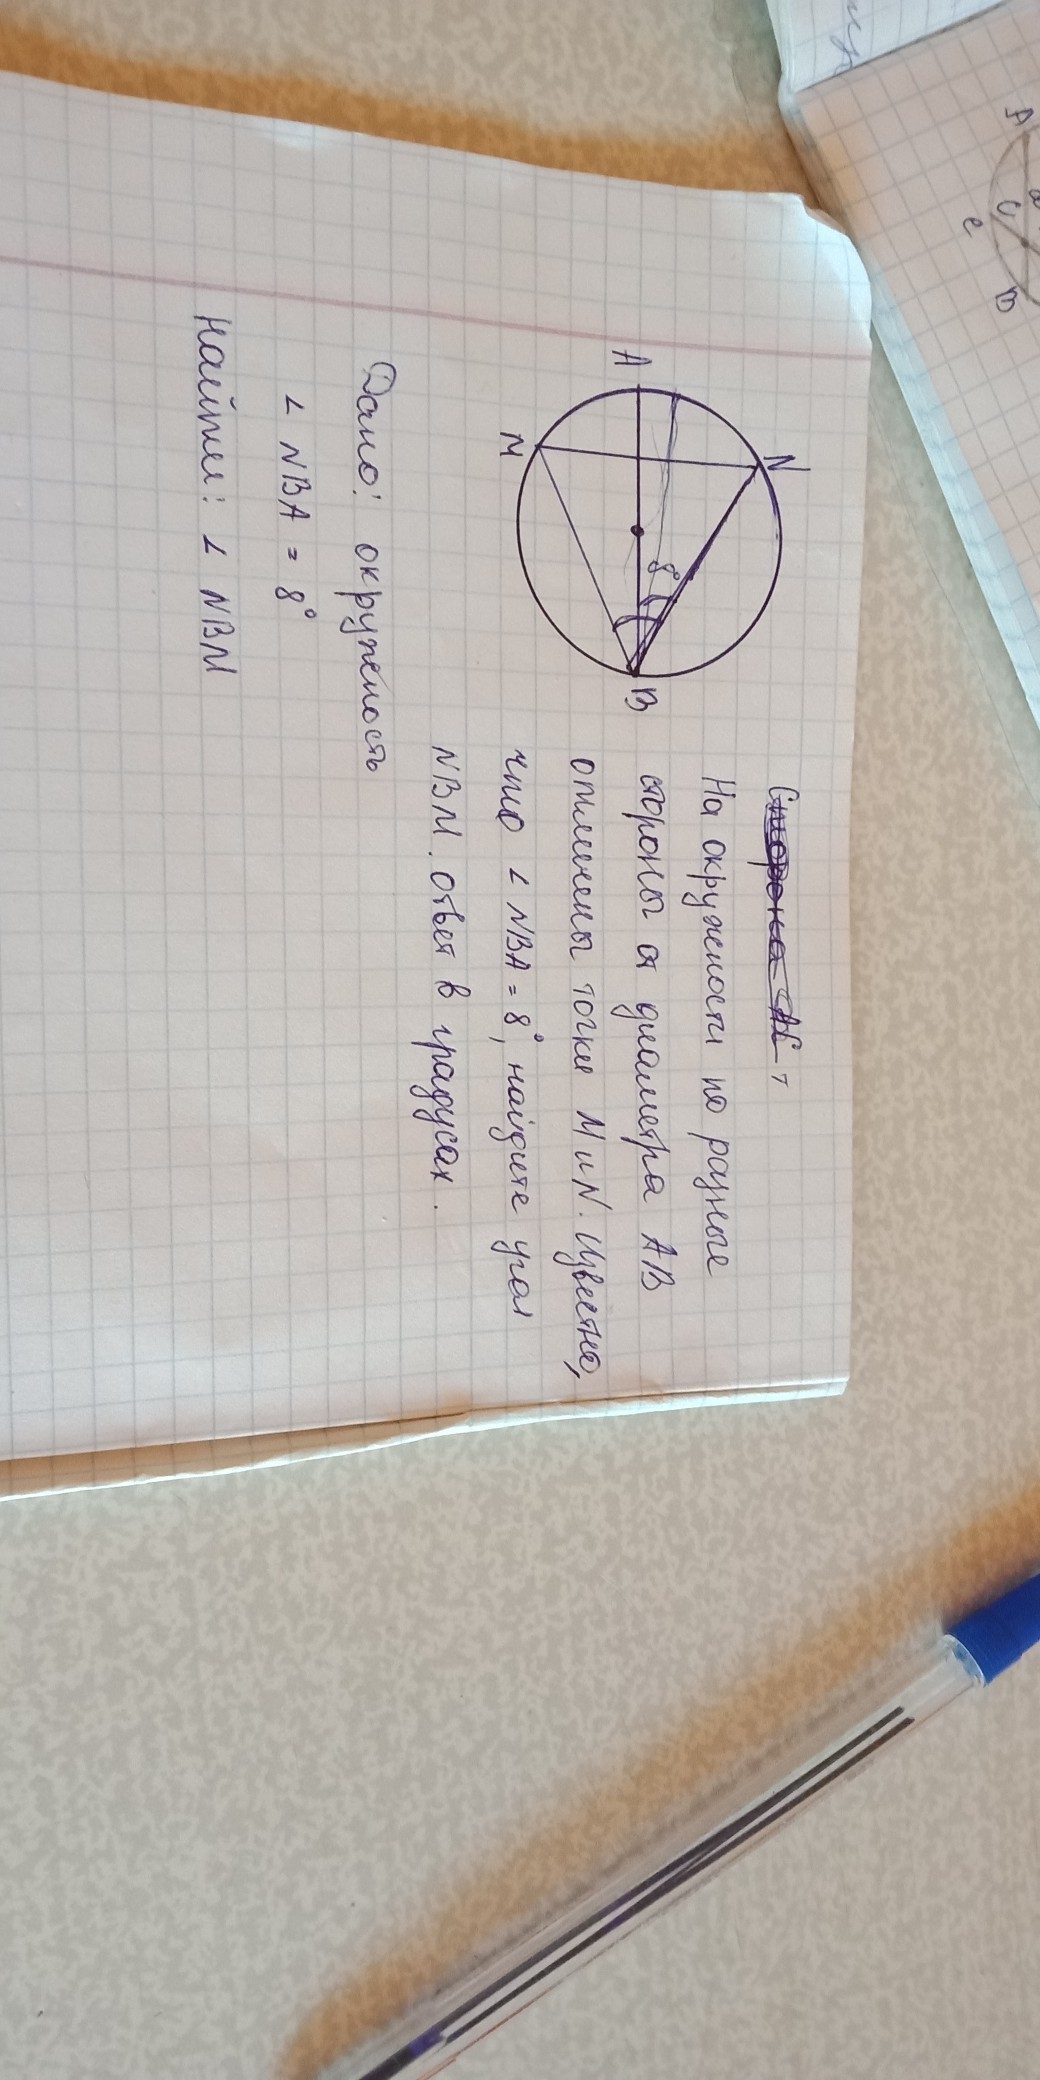 A
N
M
B
8°
Сторона АС
На окружности по разные
стороны от диаметра АВ
отмечены точки М и N. Известно,
что < NBA = 8°, найдите угол
NBM. ответ в градусах.
Дано: окружность
< NBA = 8°
Найти: < NBM
A
C
e
B